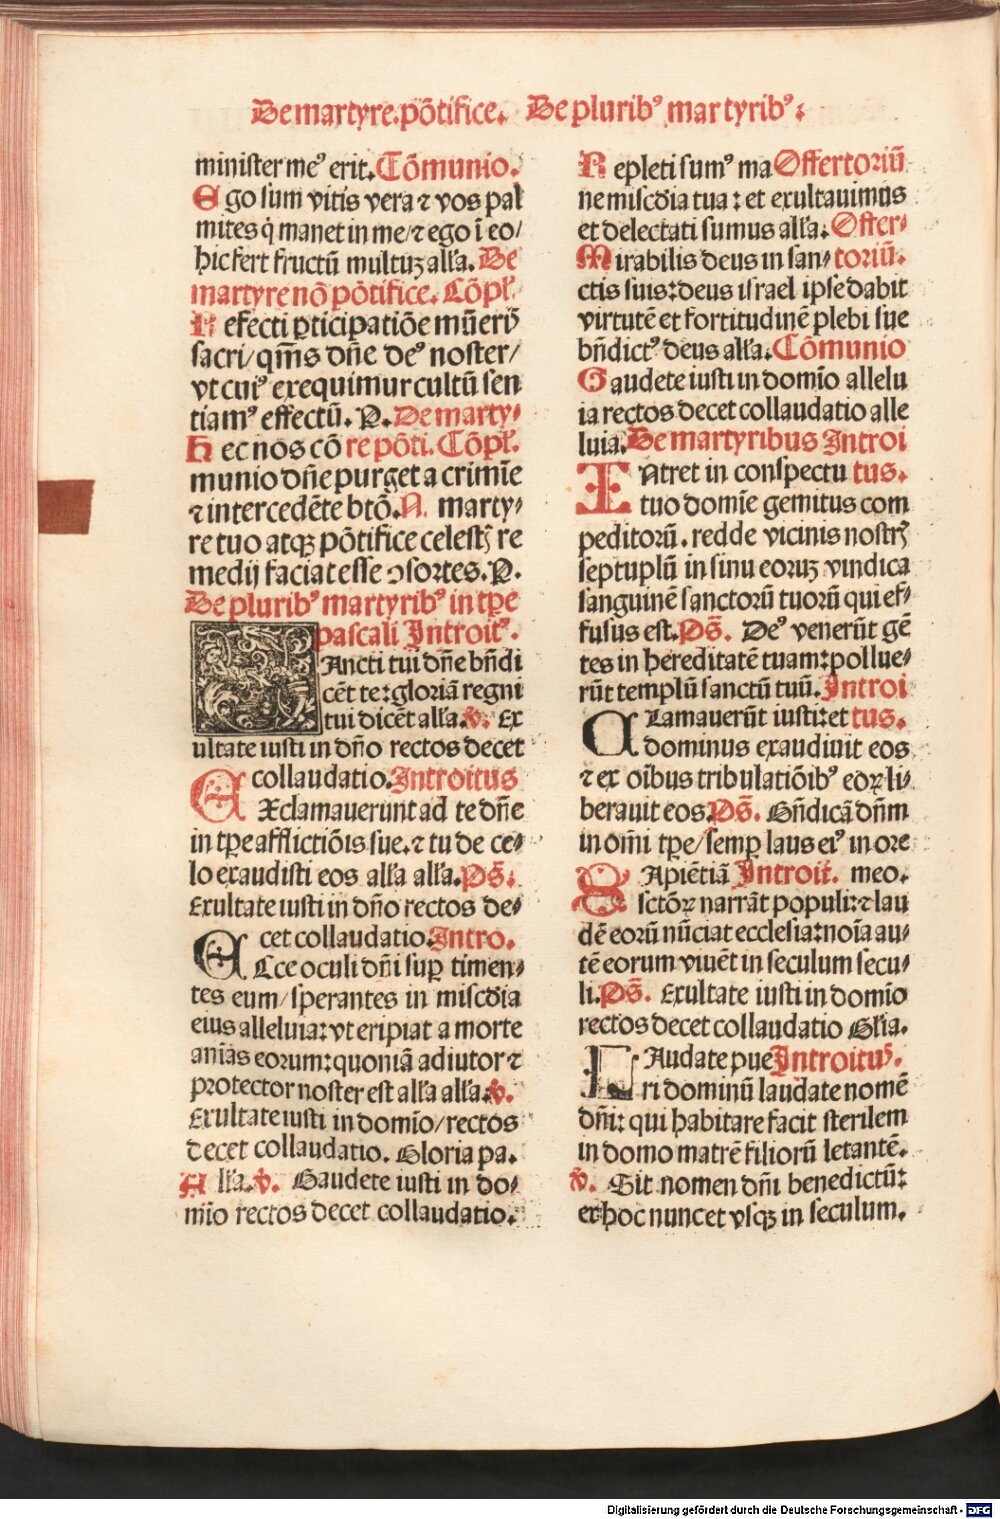 De martyre.põtifice. De pluribꝰ martyribꝰ:
minister meꝰ erit.Cõmunio.
Ego sum vitis vera ⁊ vos pal
mites q̇ manet in me/⁊ ego ĩ eo/
hic fert fructũ multuꝫ alľa. De
martyre nõ põtifice. Cõpľ.
Refecti ꝑticipatiõe mũeris
sacri/qm̃s dñe deꝰ noster/
vt cuiꝰ exequimur cultũ sen
tiamꝰ effectũ. P. De marty-
Hec nos cõ re põti. Cõpľ.
munio dñe purget a crimĩe
⁊ intercedẽte btõ.N. marty-
re tuo atqꝫ põtifice celestꝭ re
medij faciat esse ↄsortes.P.
De pluribꝰ martyribꝰ in tꝑe
pascali Introitꝰ.
SAncti tui dñe bñdi
cẽt te:gloriã regni
tui dicẽt alľa.℣. Ex
ultate iusti in dño rectos decet
collaudatio.Introitus
EXclamauerunt ad te dñe
in tꝑe afflictiõis sue.⁊ tu de ce-
lo exaudisti eos alľa alľa.Ps̃.
Exultate iusti in dño rectos de-
cet collaudatio.Intro.
ECce oculi dñi suꝑ timen-
tes eum/sperantes in miscđia
eius alleluia:vt eripiat a morte
anĩas eorum:quoniã adiutor ⁊
protector noster est alľa alľa.℣.
Exultate iusti in domĩo/rectos
decet collaudatio. Gloria pa.
Alľa.℣. Gaudete iusti in do-
mĩo rectos decet collaudatio.
Repleti sumꝰ ma Offertoriũ
ne miscđia tua: et exultauimus
et delectati sumus alľa. Offer-
Mirabilis deus in san- toriũ.
ctis suis:deus israel ipse dabit
virtutẽ et fortitudinẽ plebi sue
bñdictꝰ deus alľa.Cõmunio
Gaudete iusti in domĩo allelu
ia rectos decet collaudatio alle
luia.De martyribus Introi
INtret in conspectu tus.
tuo domĩe gemitus com
peditorũ. redde vicinis nostrꝭ
septuplũ in sinu eoruꝫ vindica
sanguinẽ sanctorũ tuorũ qui ef-
fusus est.Ps̃. Deꝰ venerũt gẽ
tes in hereditatẽ tuam:pollue-
rũt templũ sanctũ tuũ.Introi
CLamauerũt iusti:et tus.
dominus exaudiuit eos
⁊ ex oĩbus tribulatiõibꝰ eoꝝ li-
berauit eos.Ps̃. Bñdicã dñm
in om̃i tꝑe/semꝑ laus eiꝰ in ore
SApiẽtiã Introit̃. meo.
sctõꝝ narrãt populi:⁊ lau
dẽ eorũ nũciat ecclesia:noĩa au-
tẽ eorum viuẽt in seculum secu-
li.Ps̃. Exultate iusti in domĩo
rectos decet collaudatio Gľia.
LAudate pue Introitꝰ.
ri dominũ laudate nomẽ
dñi: qui habitare facit sterilem
in domo matrẽ filiorũ letantẽ.
℣. Sit nomen dñi benedictũ:
ex hoc nunc et vsqꝫ in seculum.
Digitalisierung gefördert durch die Deutsche Forschungsgemeinschaft - DFG